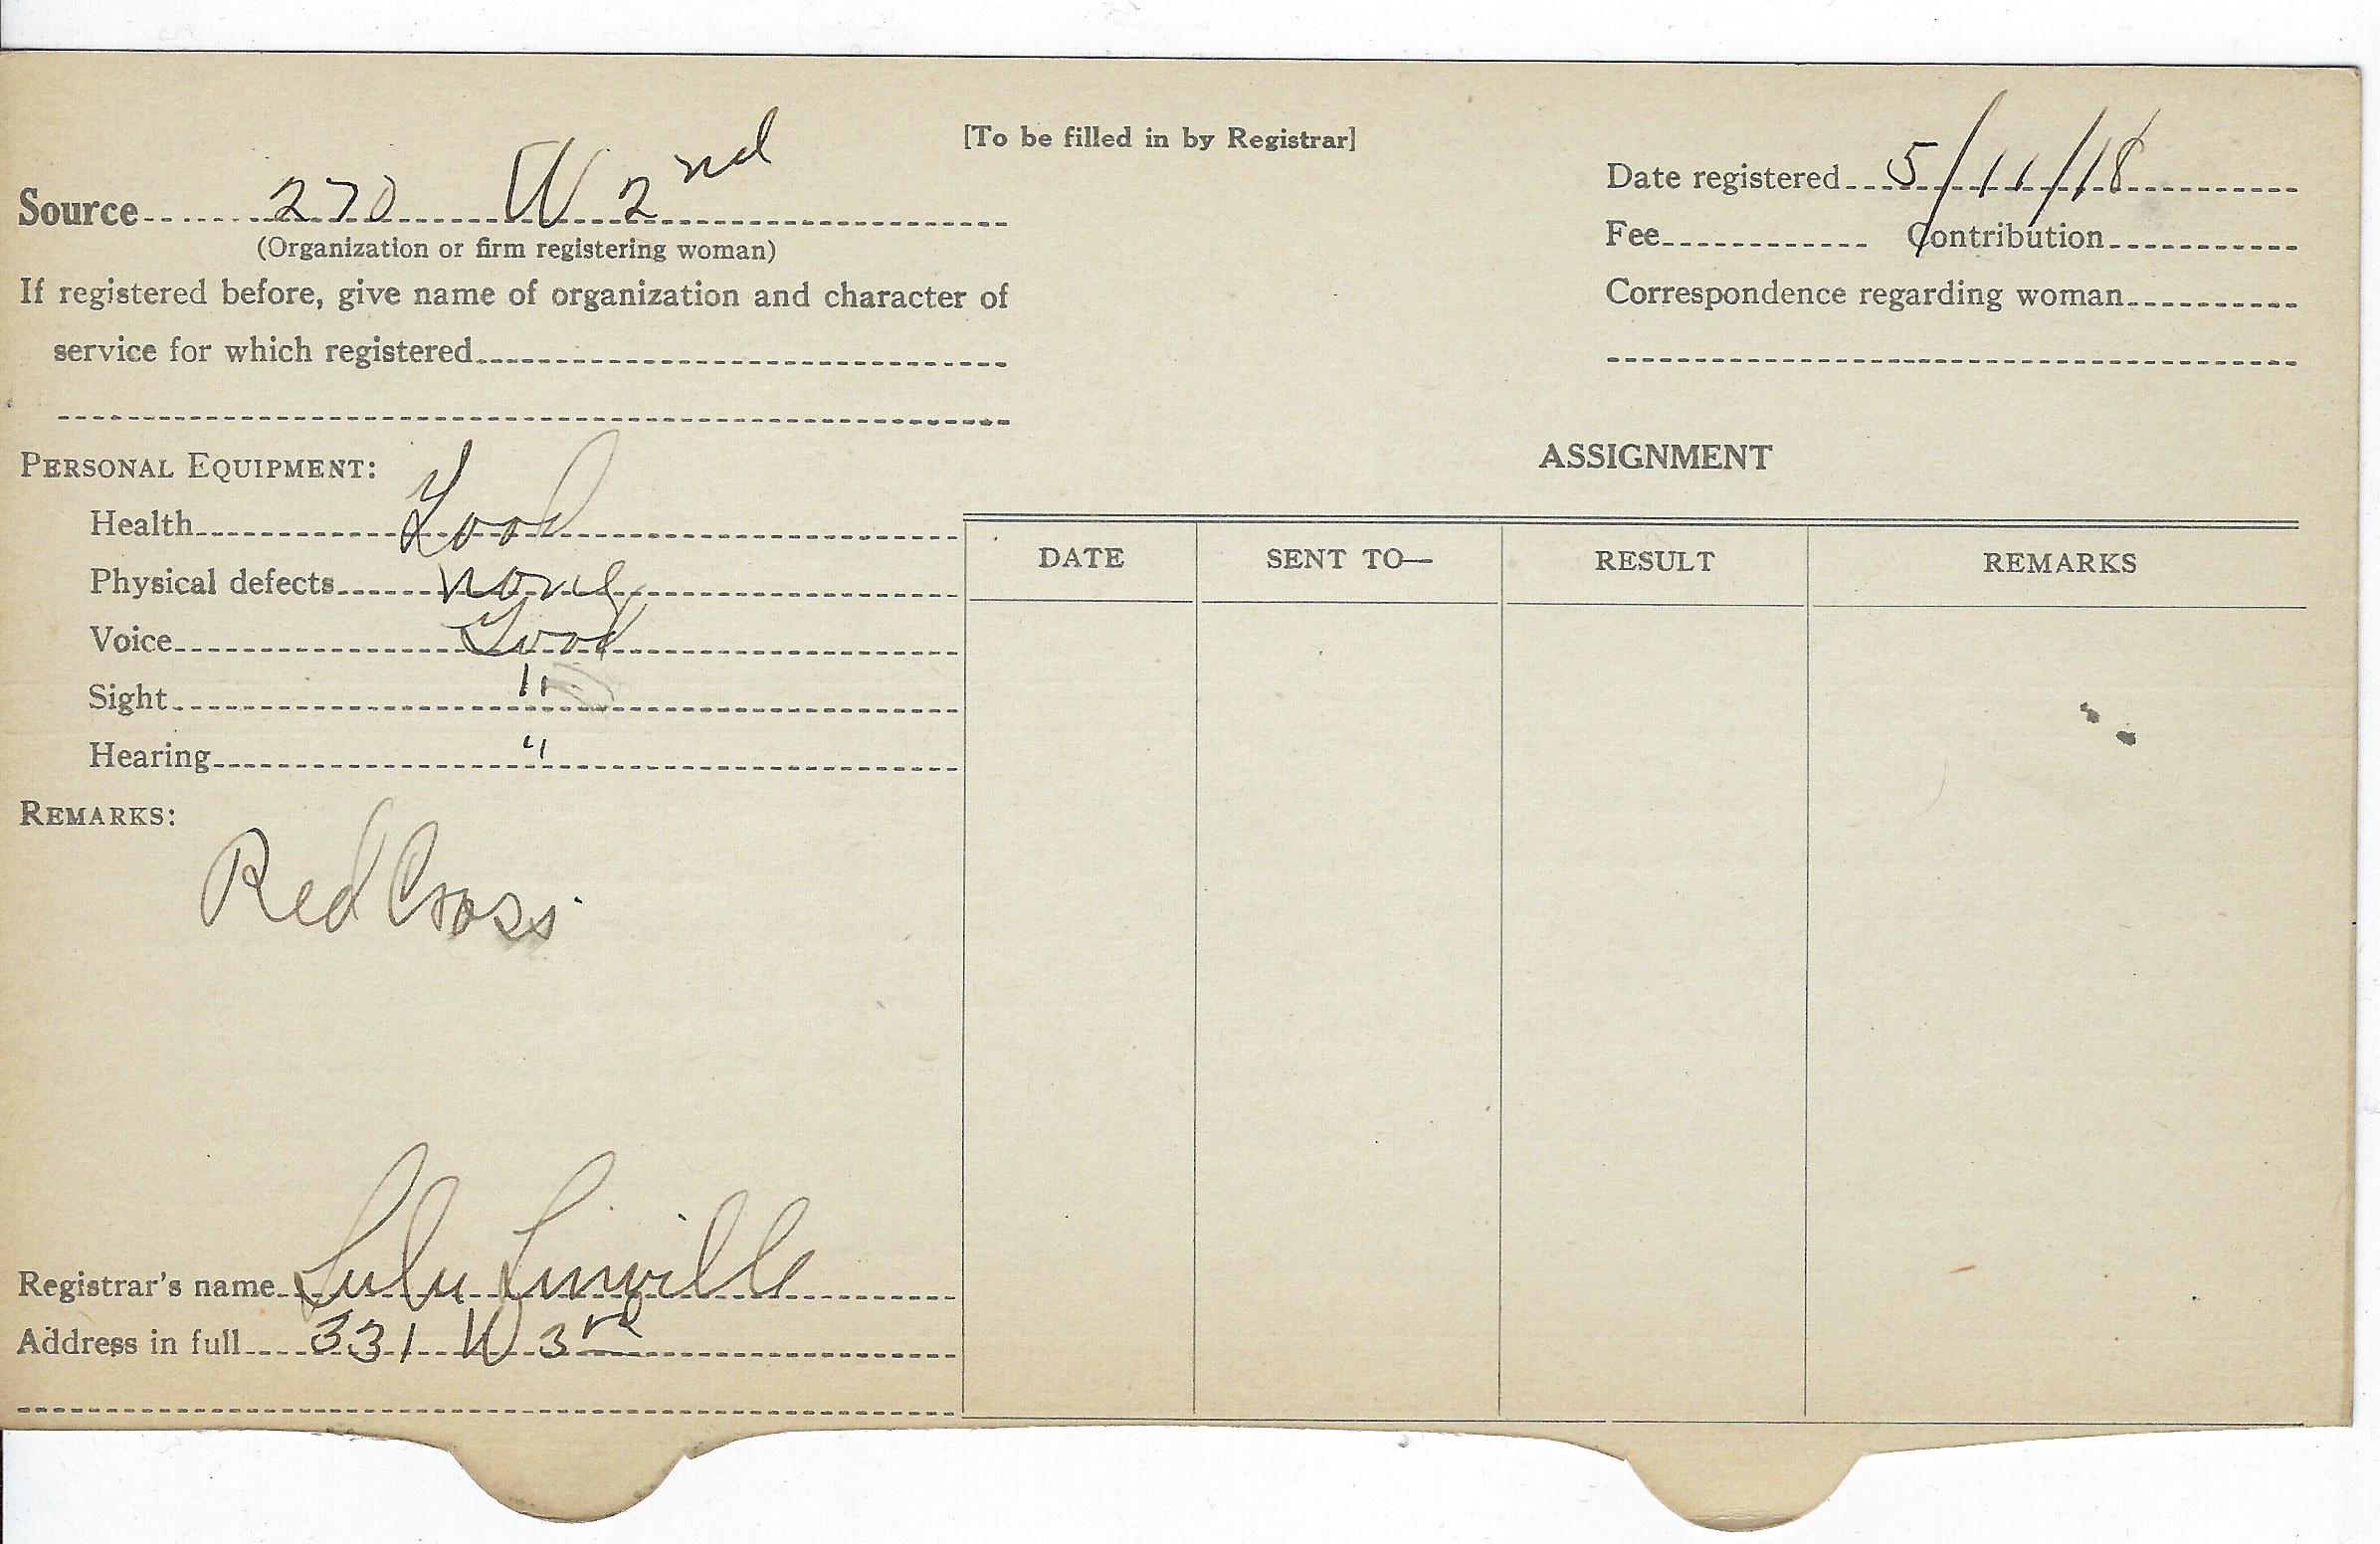 [To be filled in by Registrar]
Source 270 W 2nd
(Organization or firm registering woman)
If registered before, give name of organization and character of
service for which registered
Date registered 5/11/18
Fee Contribution
Correspondence regarding woman
PERSONAL EQUIPMENT:
Health Good
Physical defects none
Voice Good
Sight "
Hearing "
REMARKS:
Red Cross
Registrar's name Lulu Linville
Address in full 331 W 3rd
ASSIGNMENT
DATE SENT TO— RESULT REMARKS